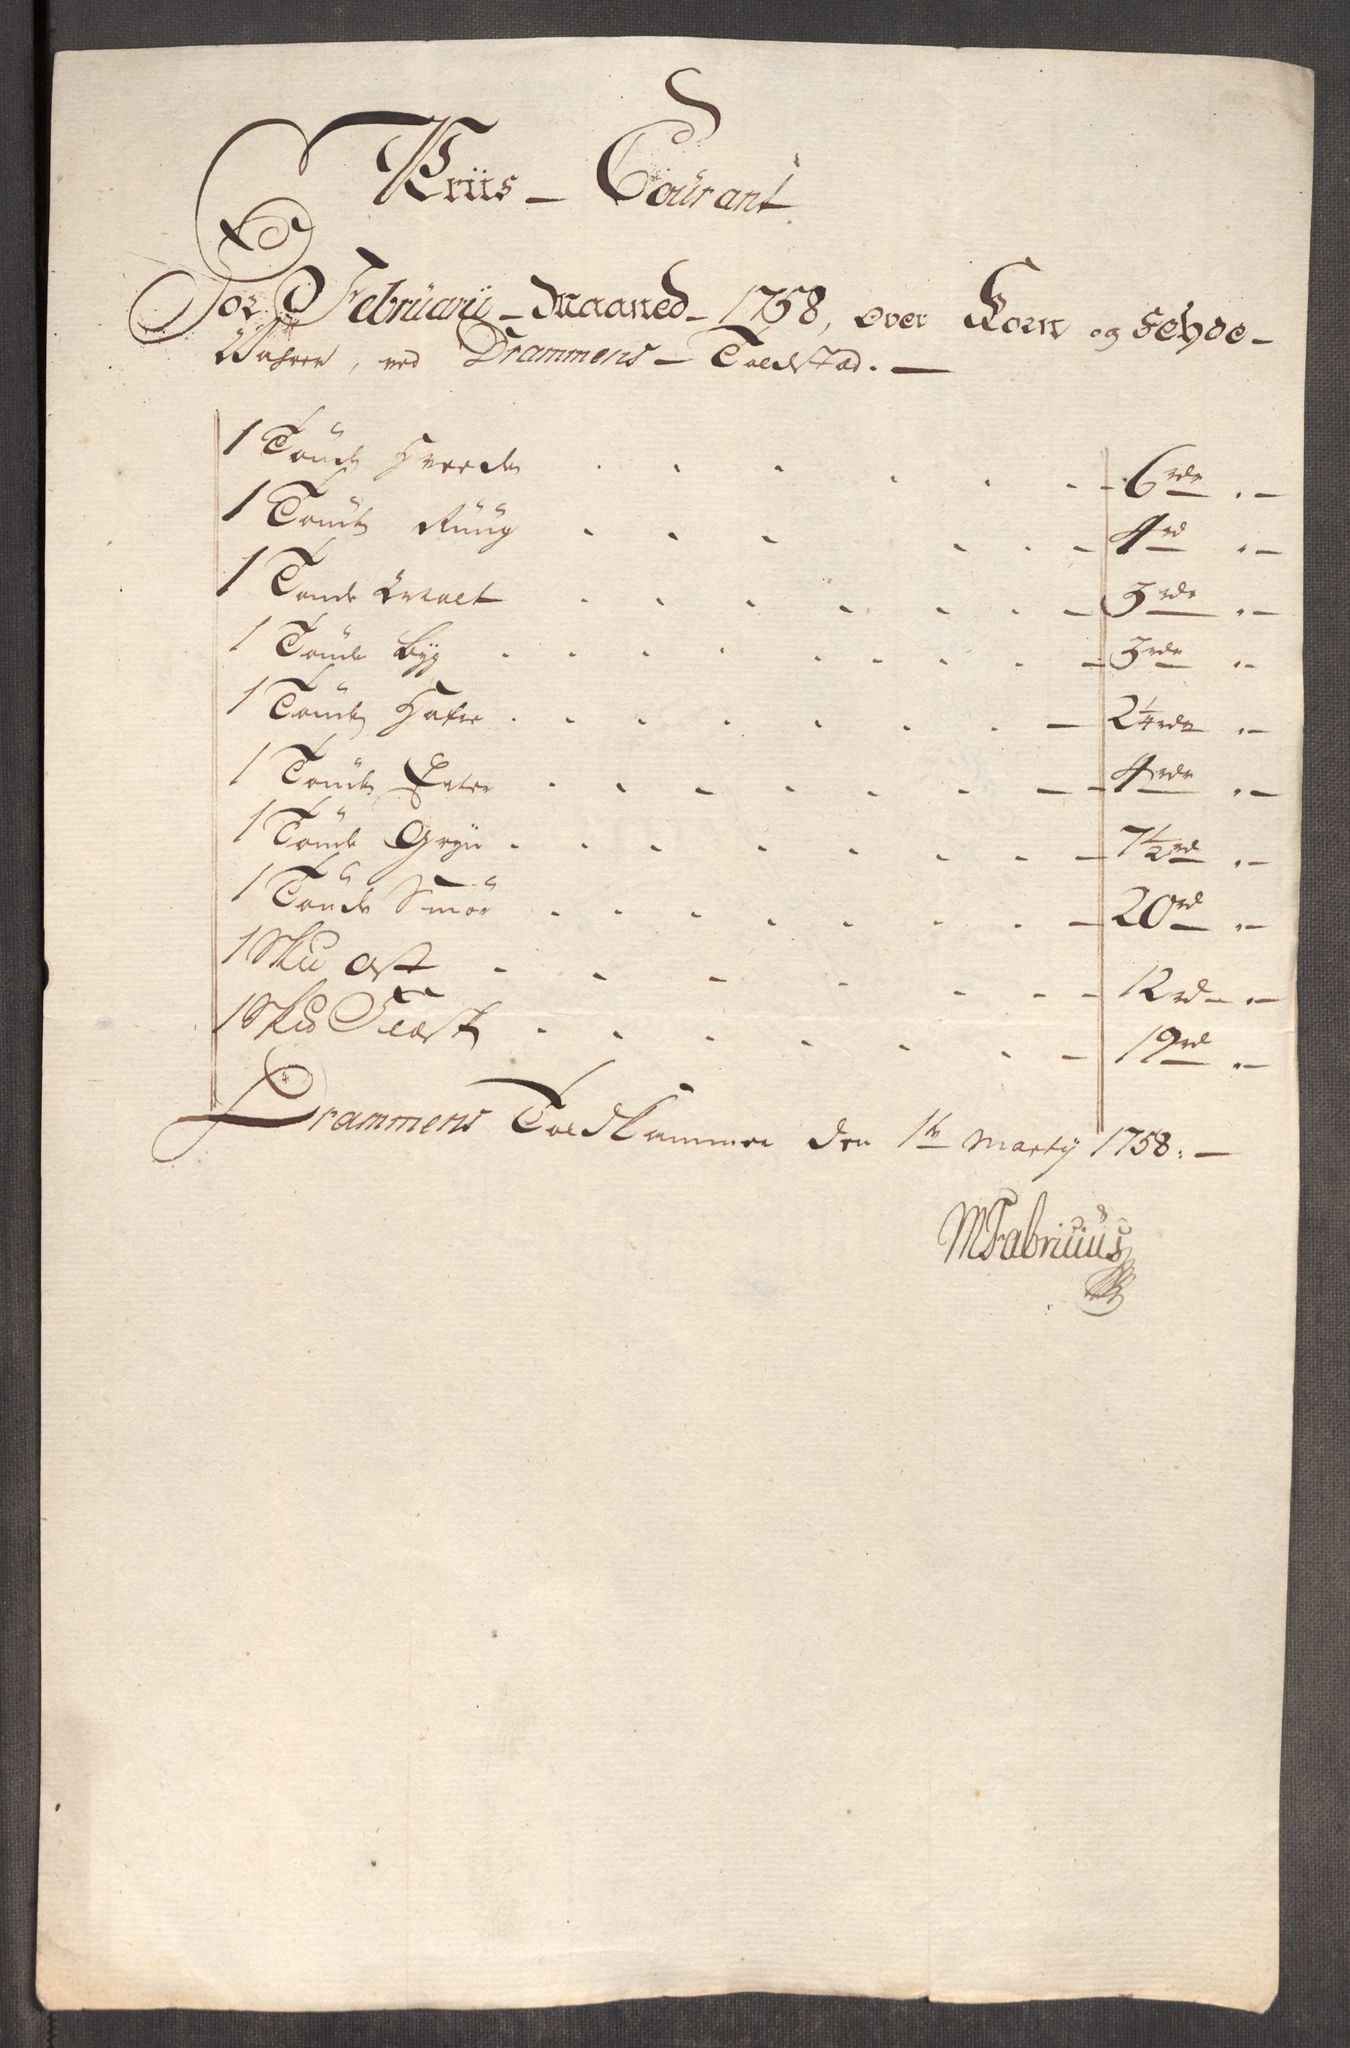 Priis - Courant
For Februarij - Maaned - 1758, over Korn og Fehoe -
Wahrer, ved Drammens - Toldstæd. -
1 Tønde Hveede . . . . . . - 6 rdr „ -
1 Tønde Ruug . . . . . - 4 rd „ -
1 Tønde Malt . . . . . . - 3 rdr „ -
1 Tønde Byg . . . . . . . - 3 rdr „ -
1 Tønde Hafre . . . . . . . - 2 1/4 rdr „ -
1 Tønde Erter . . . . . . - 4 rdr „ -
1 Tønde Gryn . . . . . . . - 7 1/2 rd „ -
1 Tønde Smør . . . . . . - 20 rd „ -
1 Sku Ost . . . . . . - 12 rd „ -
1 Sku Flæsk . . . . . . - 19 rd „ -
Drammens Toldkammer den 1te Martij 1758. -
MFabricius